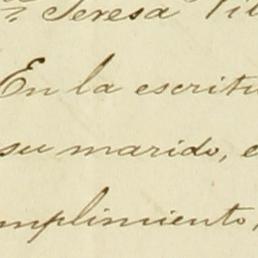 Teresa Vil
En la escritu
su marido, e
mplimiento,